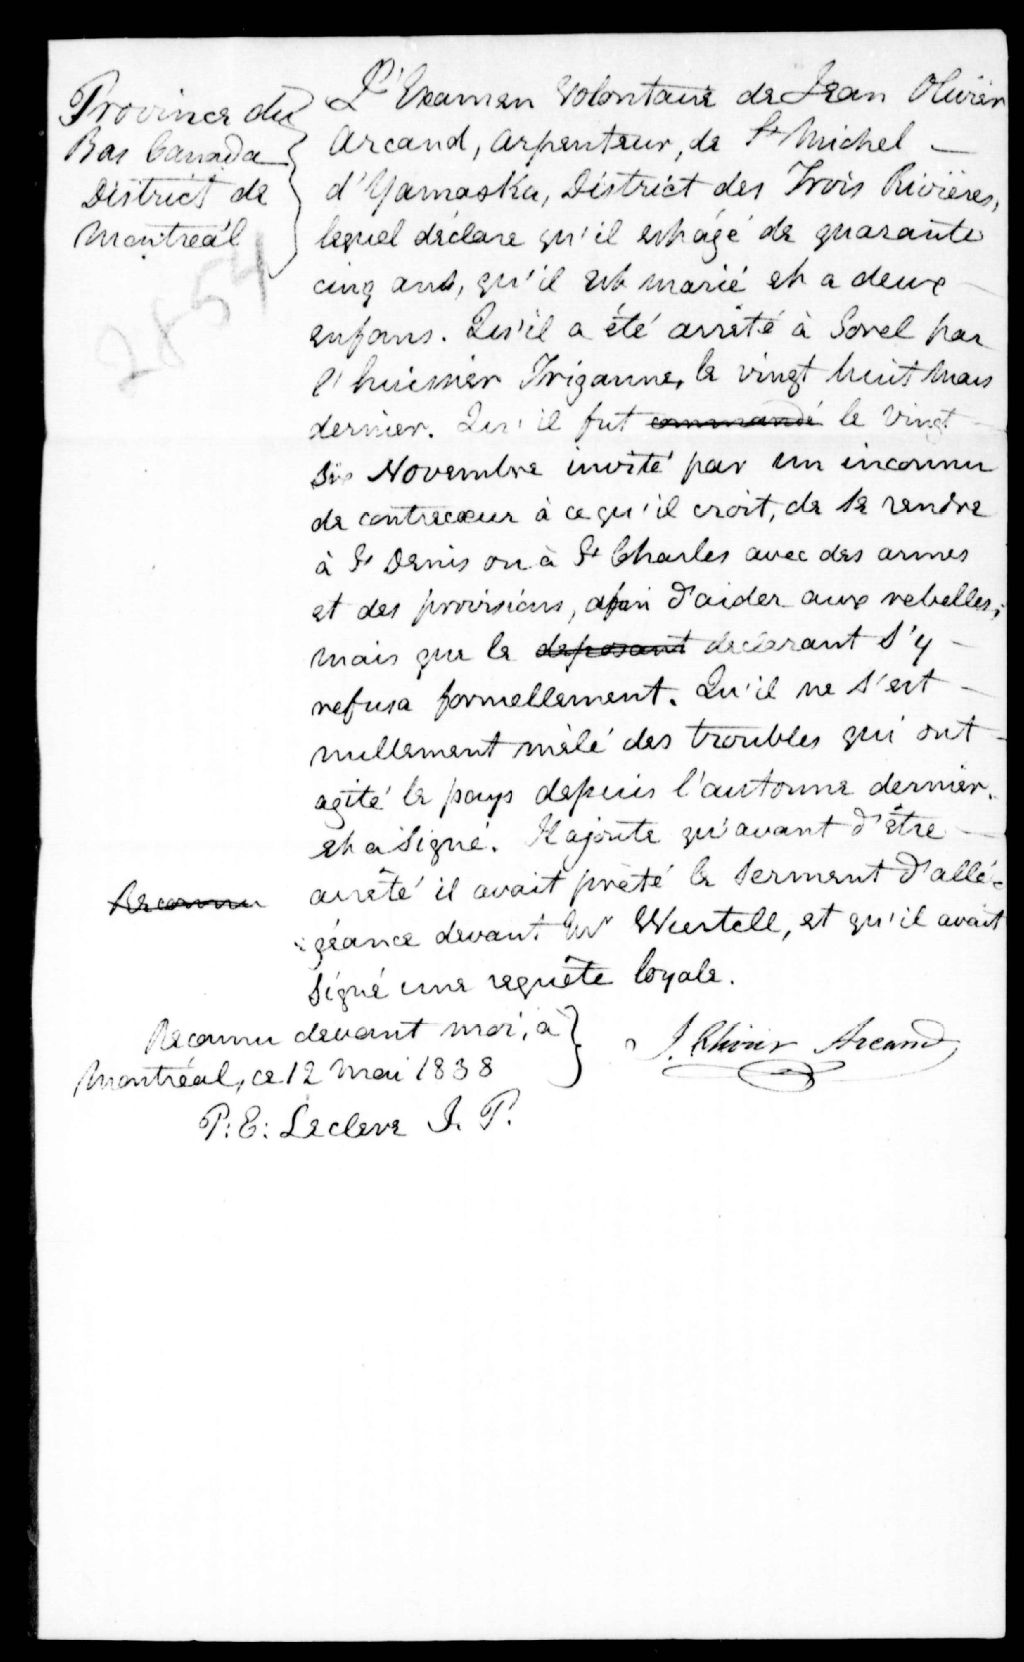 Province du
Bas Canada
District de
Montreál
2854
L'Examen Volontaire de Jean Olivier
Arcand, Arpenteur, de St Michel
d'Yamaska, District des Trois Rivières,
lequel déclare qu'il est âgé de quarante
cinq ans, qu'il est marié et a deux
enfans. Qu'il a été arrêté à Sorel par
l'huissier Triganne, le vingt huit Mars
dernier. Qu'il fut commandé le Vingt
Six Novembre invité par un inconnu
de contrecœur à ce qu'il croit, de se rendre
à St Denis ou à St Charles avec des armes
et des provisions, afin d'aider aux rebelles;
mais que le deposant declarant s'y
refusa formellement. Qu'il ne s'est
nullement mêlé des troubles qui ont
agité le pays depuis l'automne dernier.
et a signé. Il ajoute qu'avant d'être
arrêté il avait prêté le Serment d'allé=
=géance devant Mr Wurtell, et qu'il avait
Signé une requête loyale.
Reconnu
Reconnu devant moi, à
Montréal, ce 12 Mai 1838
P: E: Leclerc J. P.
J. Olivier Arcand